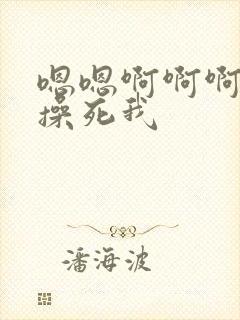 嗯嗯啊啊啊
操死我
潘海波